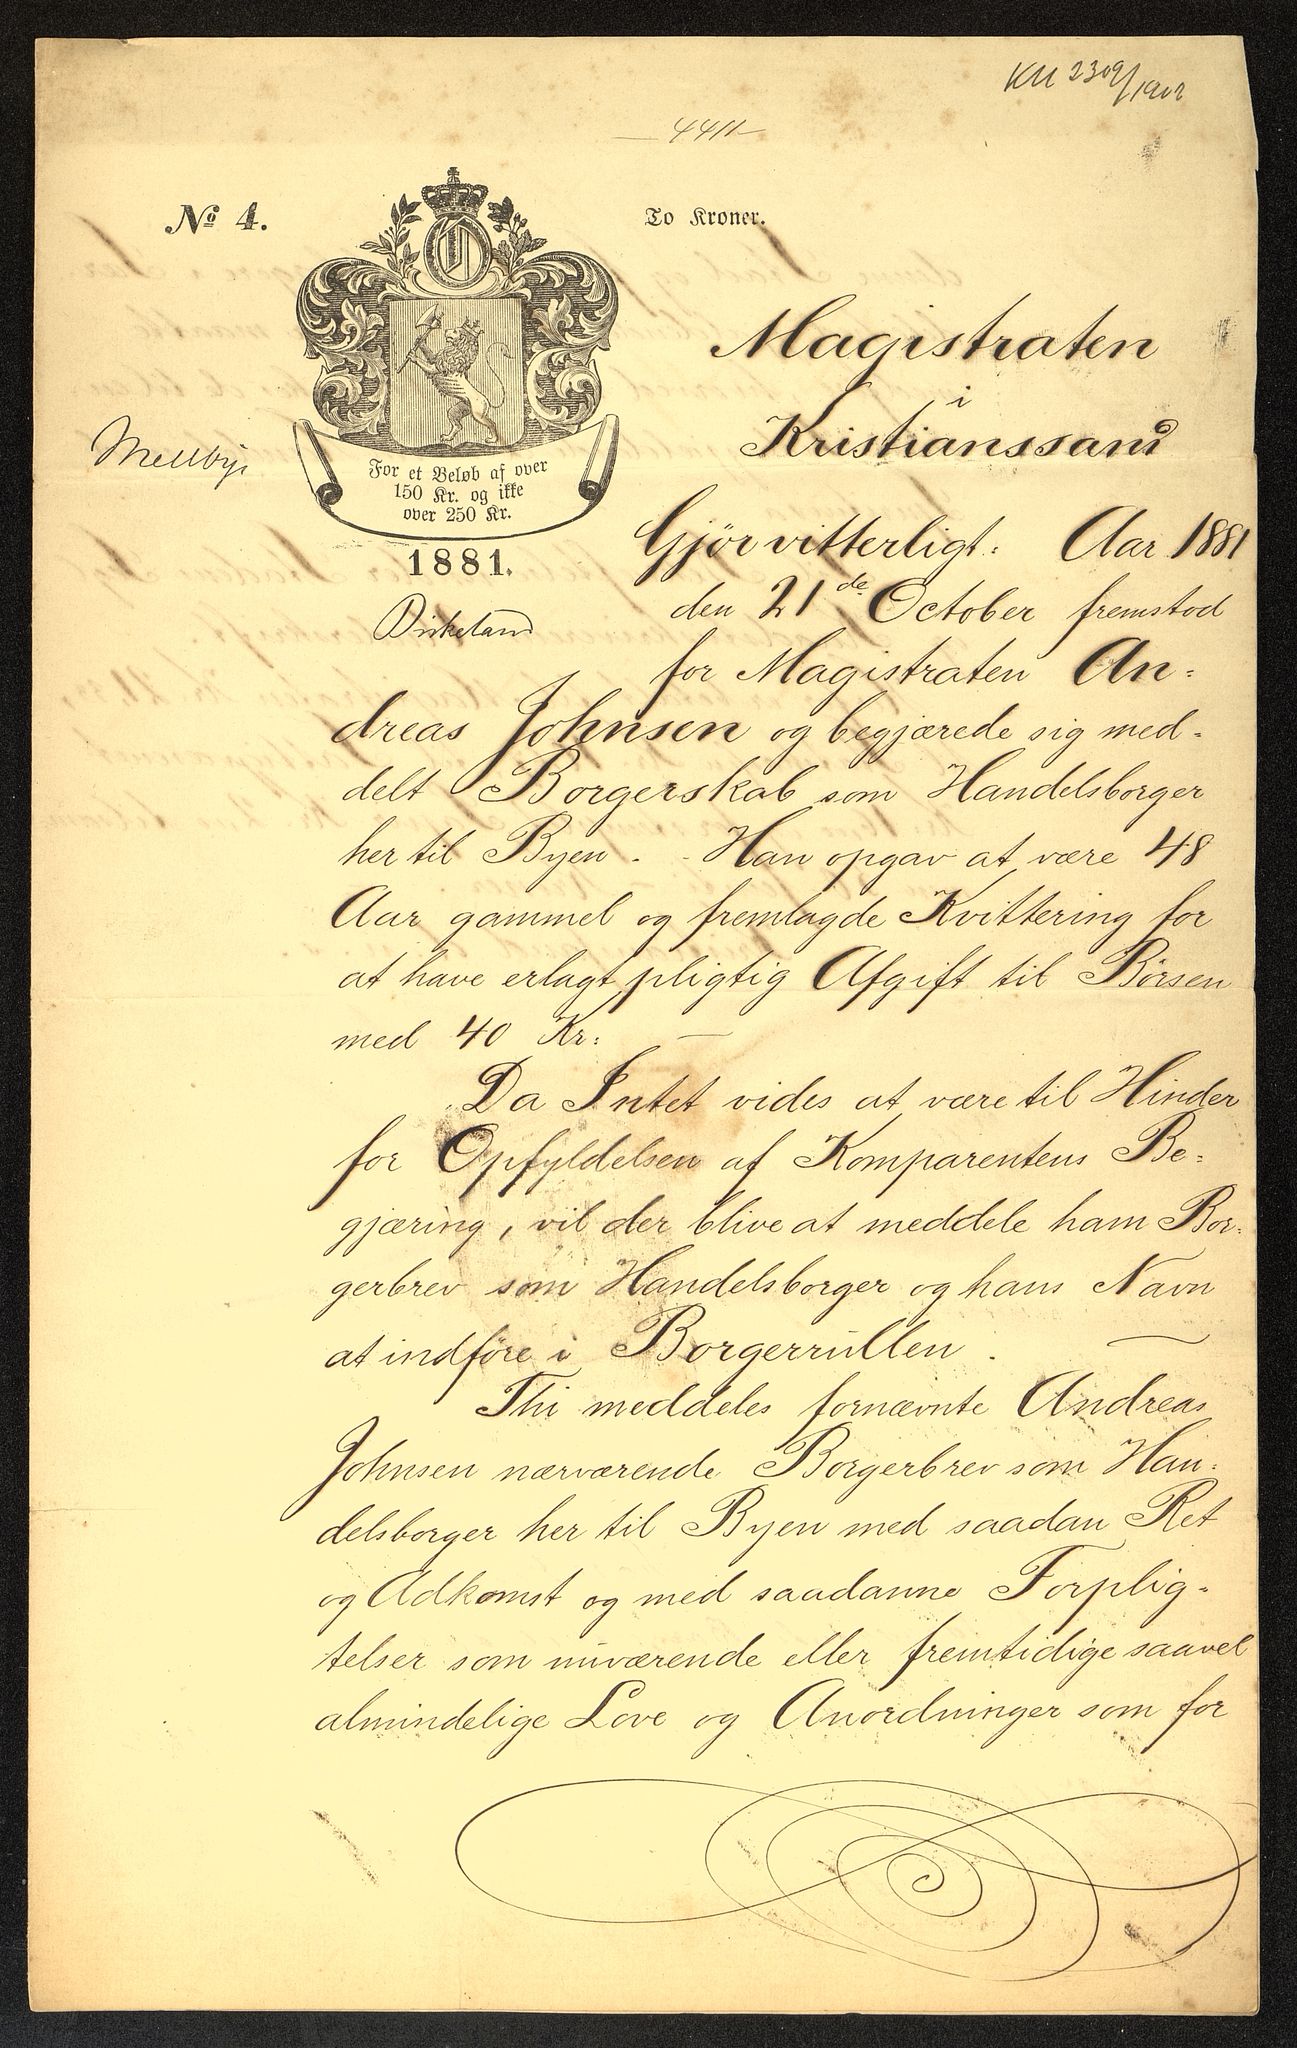 KM 2309/1902
4411
No 4.
To Kroner.
For et Beløb af over
150 Kr. og ikke
over 250 Kr.
1881.
Mellbye
Birkeland
Magistraten
i
Kristianssand
Gjør vitterligt: Aar 1881
den 21de October fremstod
for Magistraten An-
dreas Johnsen og begjærede sig med-
delt Borgerskab som Handelsborger
her til Byen. - Han opgav at være 48
Aar gammel og fremlagde Kvittering for
at have erlagt pligtig Afgift til Børsen
med 40 Kr: —
Da Intet vides at være til Hinder
for Opfyldelsen af Komparentens Be-
gjæring, vil der blive at meddele ham Bor-
gerbrev som Handelsborger og hans Navn
at indføre i Borgerrullen. —
Thi meddeles fornævnte Andreas
Johnsen nærværende Borgerbrev som Han-
delsborger her til Byen med saadan Ret
og Adkomst og med saadanne Forplig-
telser som nuværende eller fremtidige saavel
almindelige Love og Anordninger som for